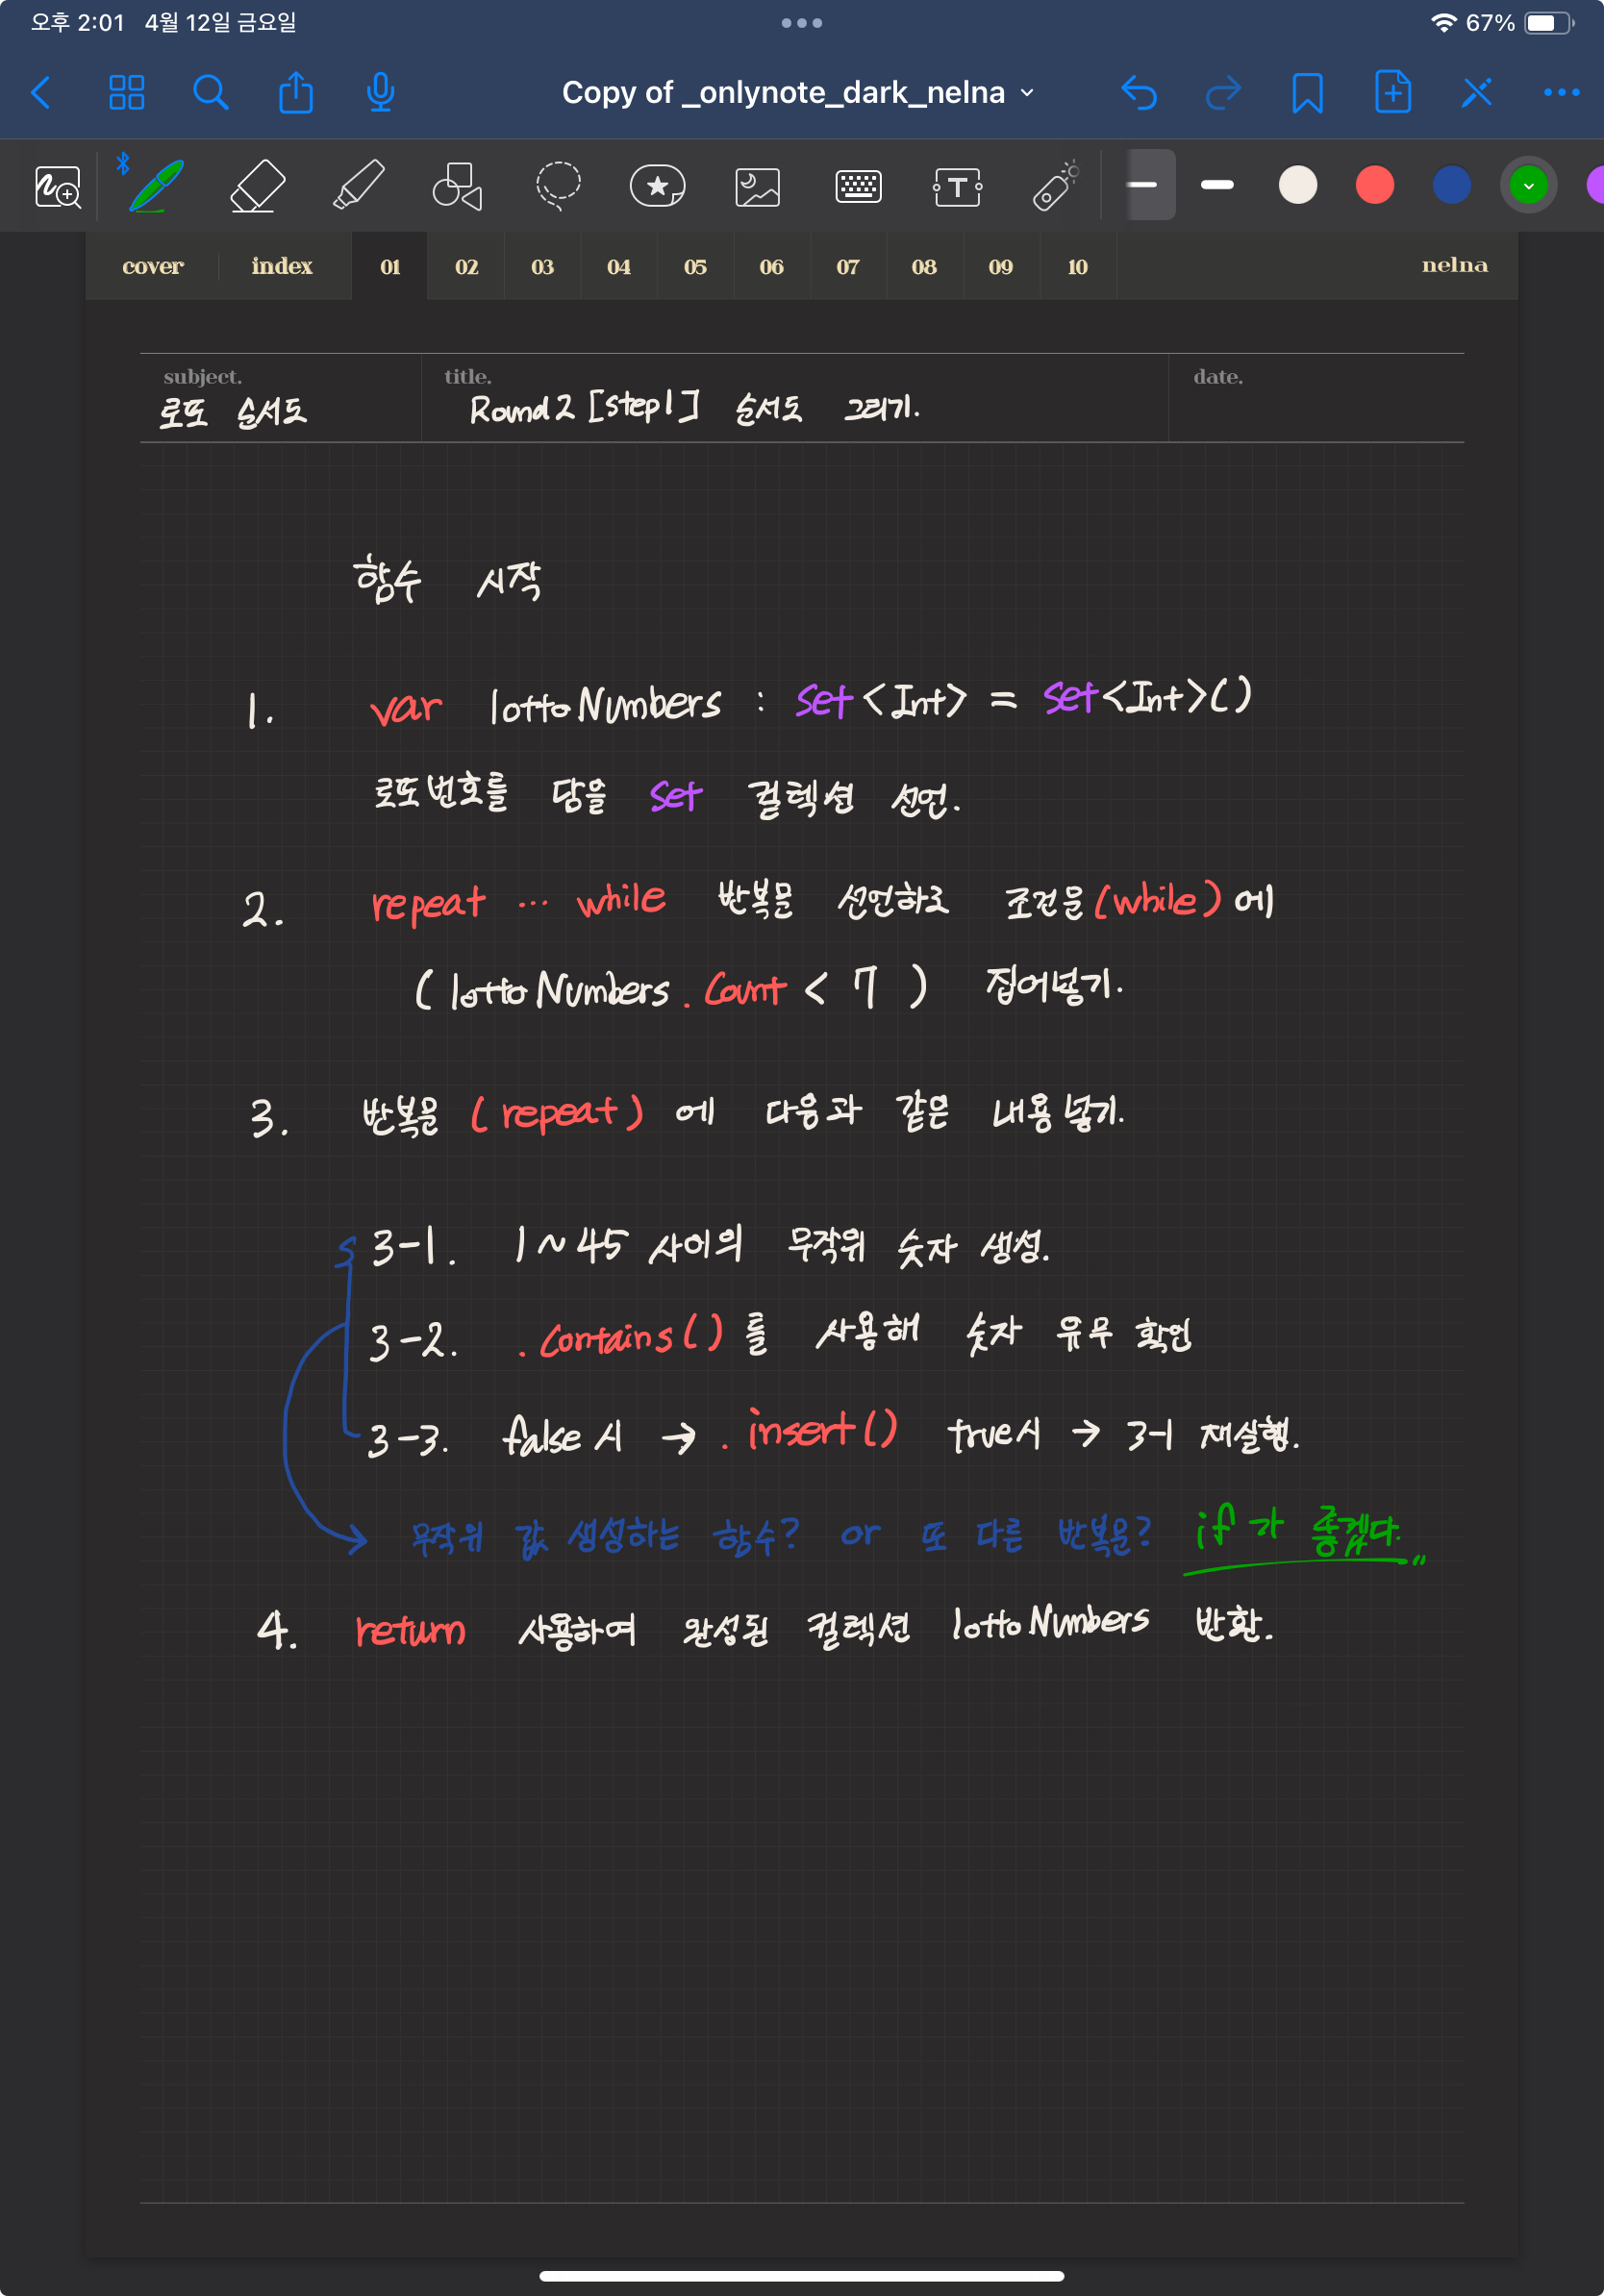 오후 2:01 4월 12일 금요일 67%
Copy of _onlynote_dark_nelna
cover index 01 02 03 04 05 06 07 08 09 10 nelna
subject. title. date.
로또 순서도 Round 2 [step1] 순서도 그리기.
함수 시작
1. var lottoNumbers : Set<Int> = Set<Int>()
로또번호를 담을 Set 컬렉션 선언.
2. repeat ... while 반복문 선언하고 조건문(while)에
(lottoNumbers.Count < 7) 집어넣기.
3. 반복문 (repeat)에 다음과 같은 내용넣기.
3-1. 1~45 사이의 무작위 숫자 생성.
3-2. .Contains()를 사용해 숫자 유무 확인
3-3. false시 → .insert() true시 → 3-1 재실행.
무작위 값 생성하는 함수? or 또 다른 반복문? if가 좋겠다.
4. return 사용하여 완성된 컬렉션 lottoNumbers 반환.